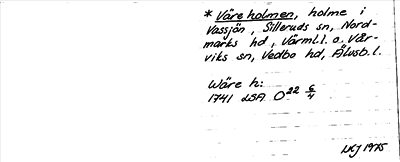 * Väreholmen, holme i
Vassjön, Silleruds sn, Nord-
marks hd, Värml.l. o. Vår-
viks sn, Vedbo hd, Älvsb.l.
Wäre h:
1741 LSA O²² 6/4
1975